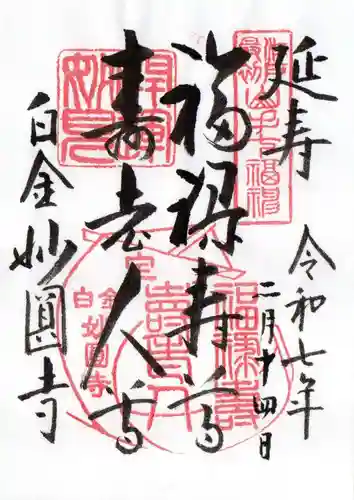 延寿
令和七年
二月十四日
福禄寿尊
寿老人尊
白金妙圓寺
山手七福神
福禄寿
寿老人
白金
妙圓寺